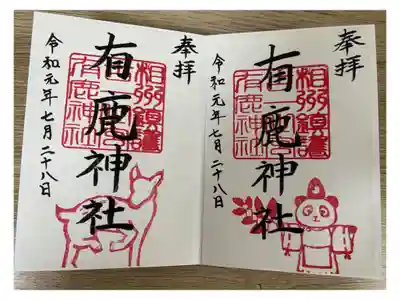 奉拝
相州鎮護
有鹿神社
有鹿神社
令和元年七月二十八日
奉拝
相州鎮護
有鹿神社
有鹿神社
令和元年七月二十八日